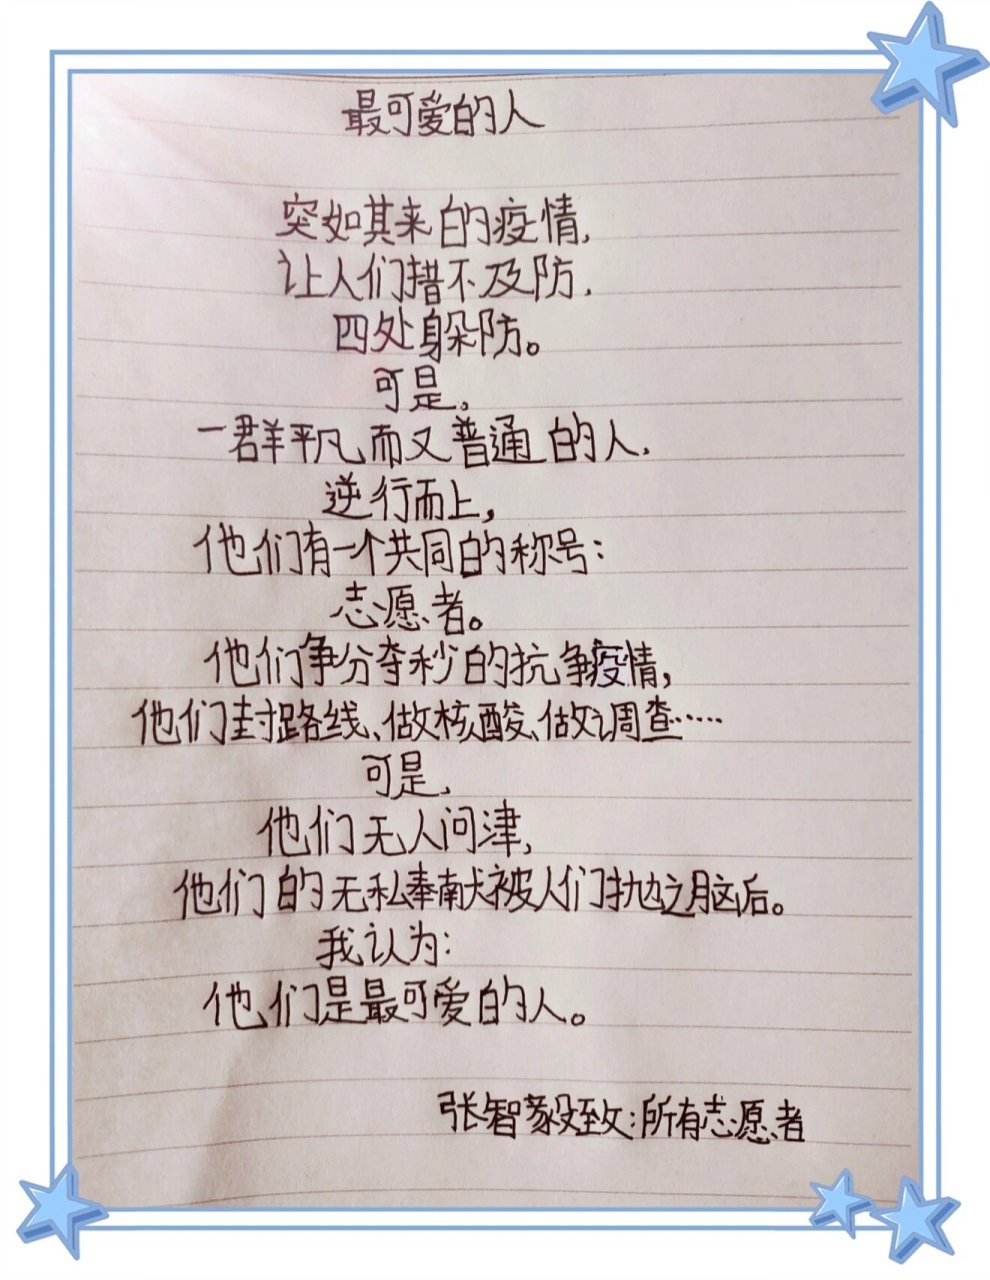 最可爱的人
突如其来的疫情,
让人们措不及防.
四处躲防。
可是。
一群平凡而又普通的人.
逆行而上,
他们有一个共同的称号:
志愿者。
他们争分夺秒的抗争疫情,
他们封路线、做核酸、做调查……
可是,
他们无人问津,
他们的无私奉献被人们抛之脑后。
我认为:
他们是最可爱的人。
张智毅致:所有志愿者